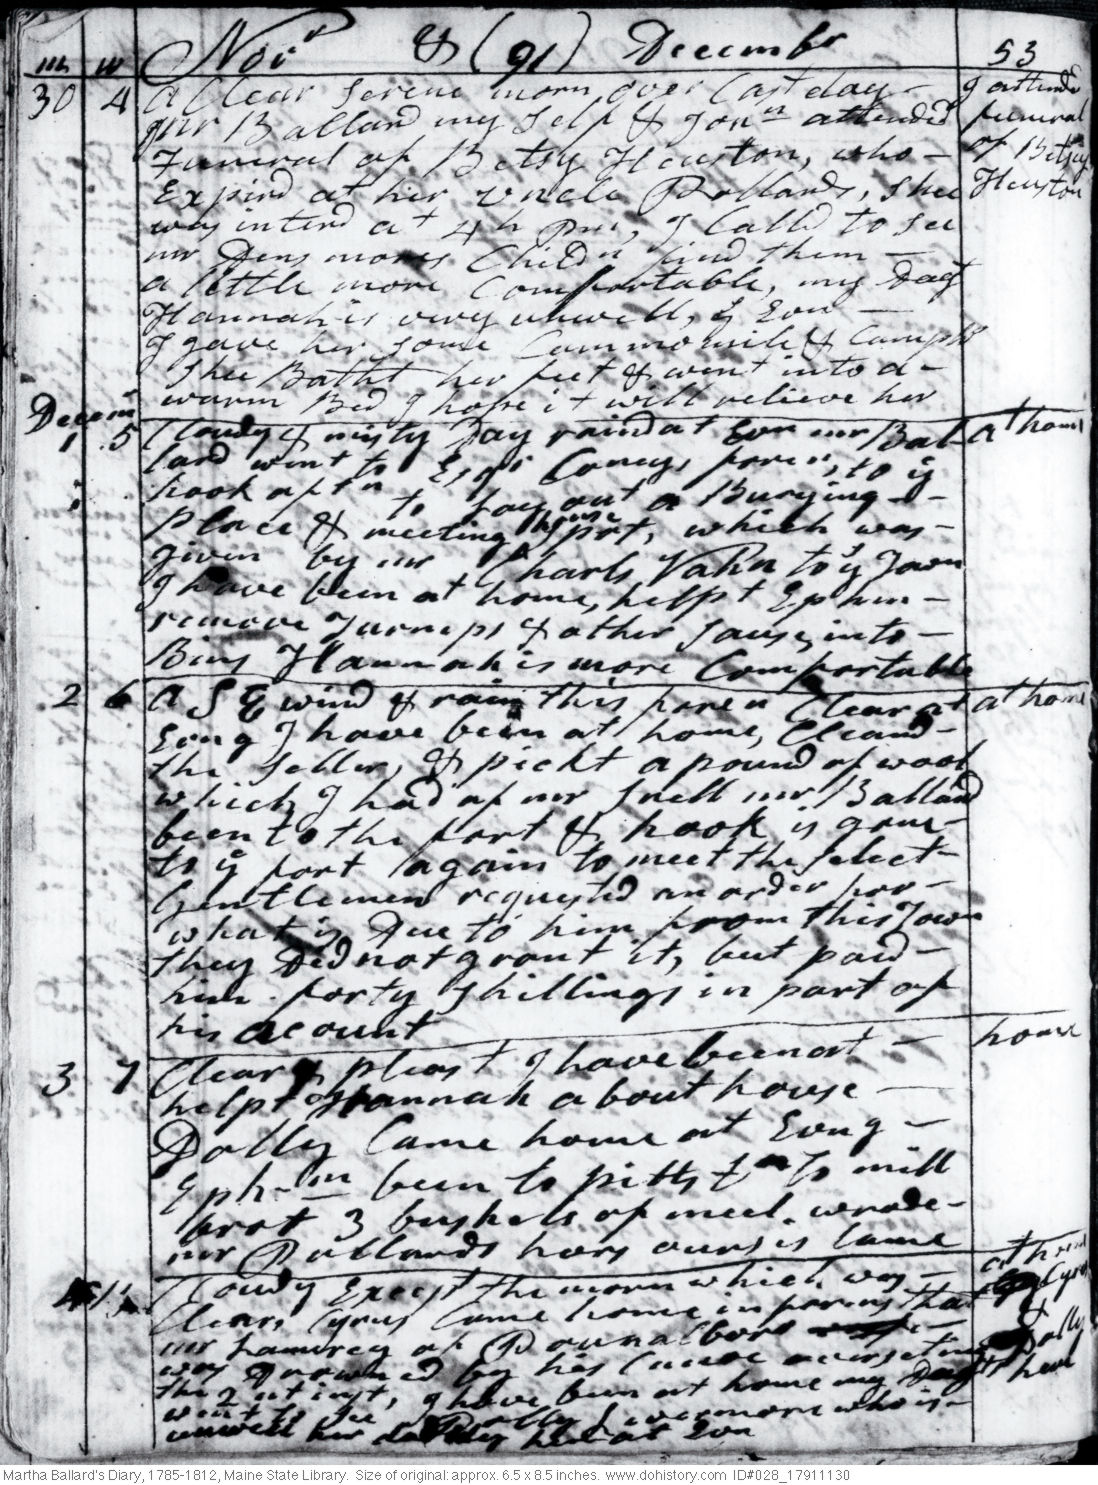 m w Novr & (91) Decembr 53
30 4 a Clear Serene morn over Cast day - I attended
mr Ballard my Self & Jonn attended funeral
Funeral of Betsy Heuston, who - of Betsy
Expird at her uncle Pollards, Shee Heuston
was interd at 4 h pm, I Calld to See
mr Densmores Childn find them -
a little more Comfortable, my Dagt
Hannah is very unwell, s Evn -
I gave her some Cammomile & Camphr
Shee Batht her feet & went into a -
warm Bed I hope it will relieve her
Decemr
1 5 Cloudy & misty Day raind at Evn mr Bal- at home
lard went to Esqr Coneys foren, to ye
hook aftn to Lay out a Burying -
place & meeting house , which was -
given by mr Charls Vahn to ye Town
I have been at home, helpt Ephm -
remove Turneps & other Sause, into -
Bins Hannah is more Comfortable
2 6 a S E wind & rain this foren Clear at at home
Evng I have been at home, Cleand -
the Seller, & pickt a pound of wool
which I had of mr Snell mr Ballard
been to the fort & hook is gone -
to ye fort again to meet the Select -
Gentlemen requested an order for -
what is Due to him from this Town
they Did not grant it, but paid -
him forty Shillings in part of
his acount
3 7 Clear & pleast I have been at - home
helpt Hannah about house -
Dolly Came home at Evng -
Ephm been to pitts to mill
brot 3 bushels of meel. wrode -
mr Pollards hors ours is lame
Cloudy Except the morn which was - at home
Clear, Cyrus Came home informs that Cyrus
mr of Pownalboro &
was Drownded by his Canoe oversetting Dolly
the 2nd inst, I have been at home my Dagt here
went to see Polly who is -
unwell her here at Evn
Martha Ballard's Diary, 1785-1812, Maine State Library. Size of original: approx. 6.5 x 8.5 inches. www.dohistory.com ID#028_17911130